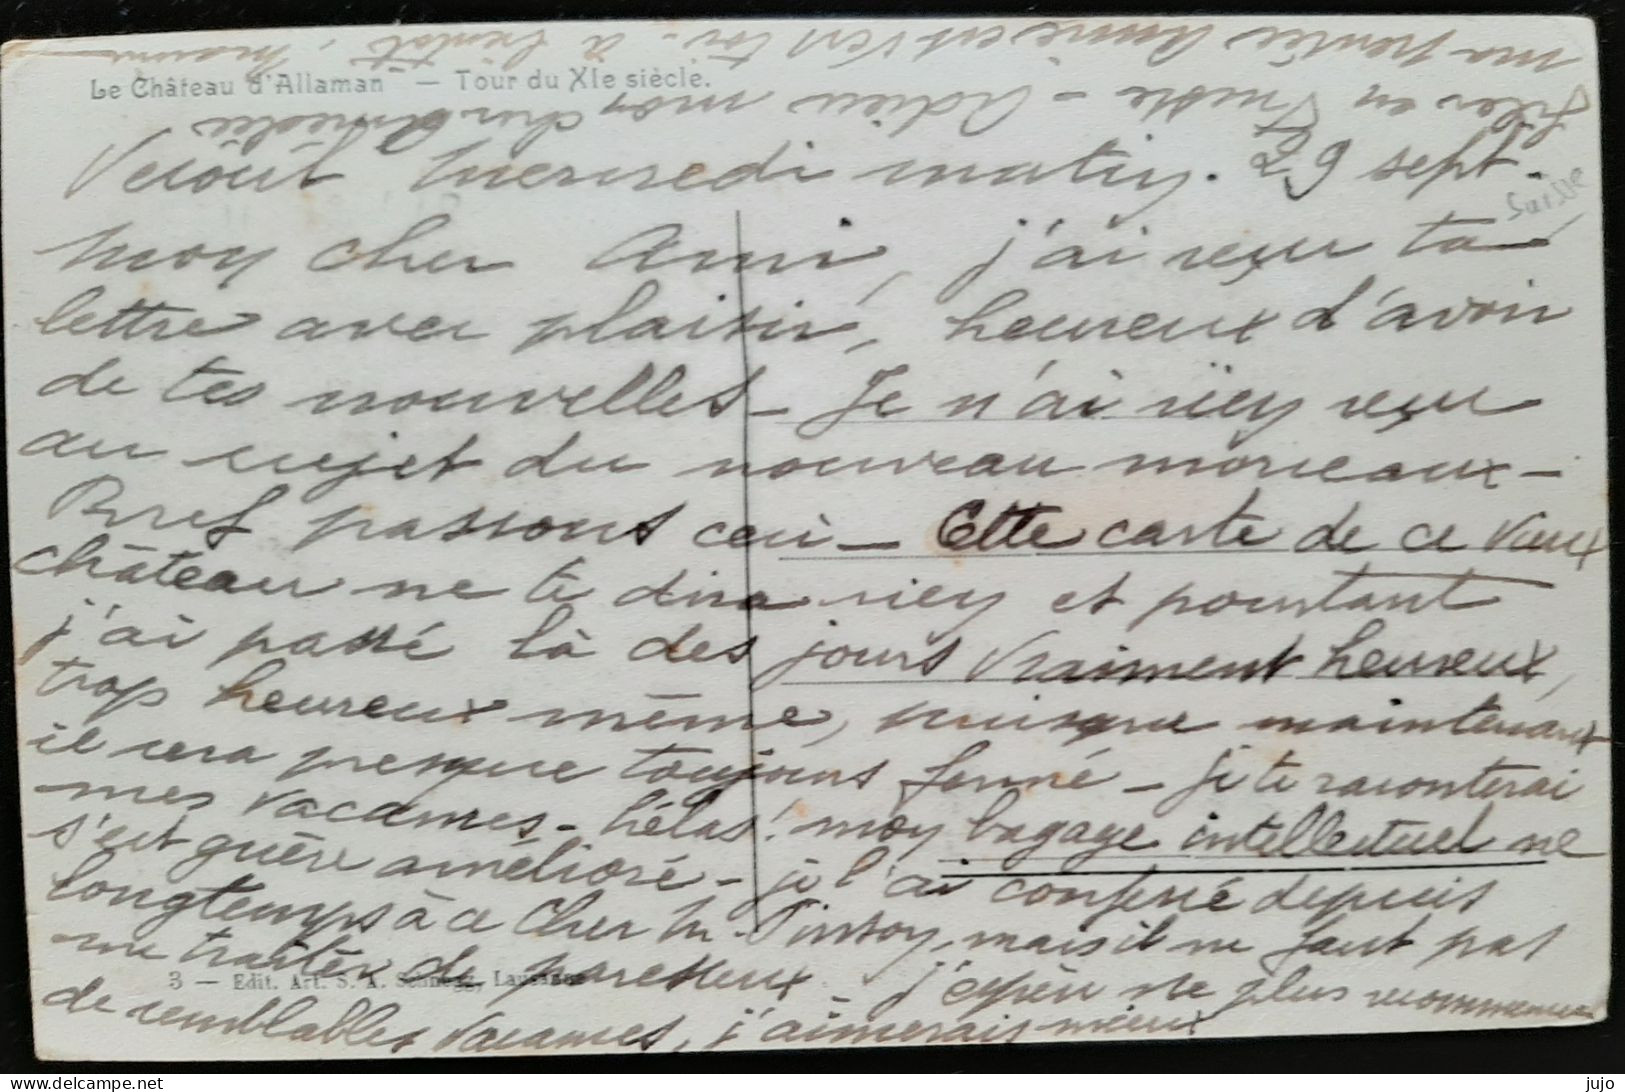 Le Château d'Allaman — Tour du XIe siècle.
mercredi matin. 29 sept.
Suisse
mon cher Ami, j'ai reçu ta
lettre avec plaisir, heureux d'avoir
de tes nouvelles — Je n'ai rien reçu
au sujet du nouveau morceaux —
Bref passons ceci — Cette carte de ce vieux
château ne te dira rien et pourtant
j'ai passé là des jours vraiment heureux,
trop heureux même, puisque maintenant
il sera presque toujours fermé — je te raconterai
mes vacances — hélas! mon bagage intellectuel ne
s'est guère amélioré — je l'ai confessé depuis
longtemps à ce cher M. mais il ne faut pas
me traiter de paresseux. j'espère ne plus recommencer
de semblables vacances, j'aimerais mieux
filer en Adieu mon cher
ma pensée est vers toi — à bientôt,
3 — Edit. Art. S. A. Schnegg, Lausanne
jujo